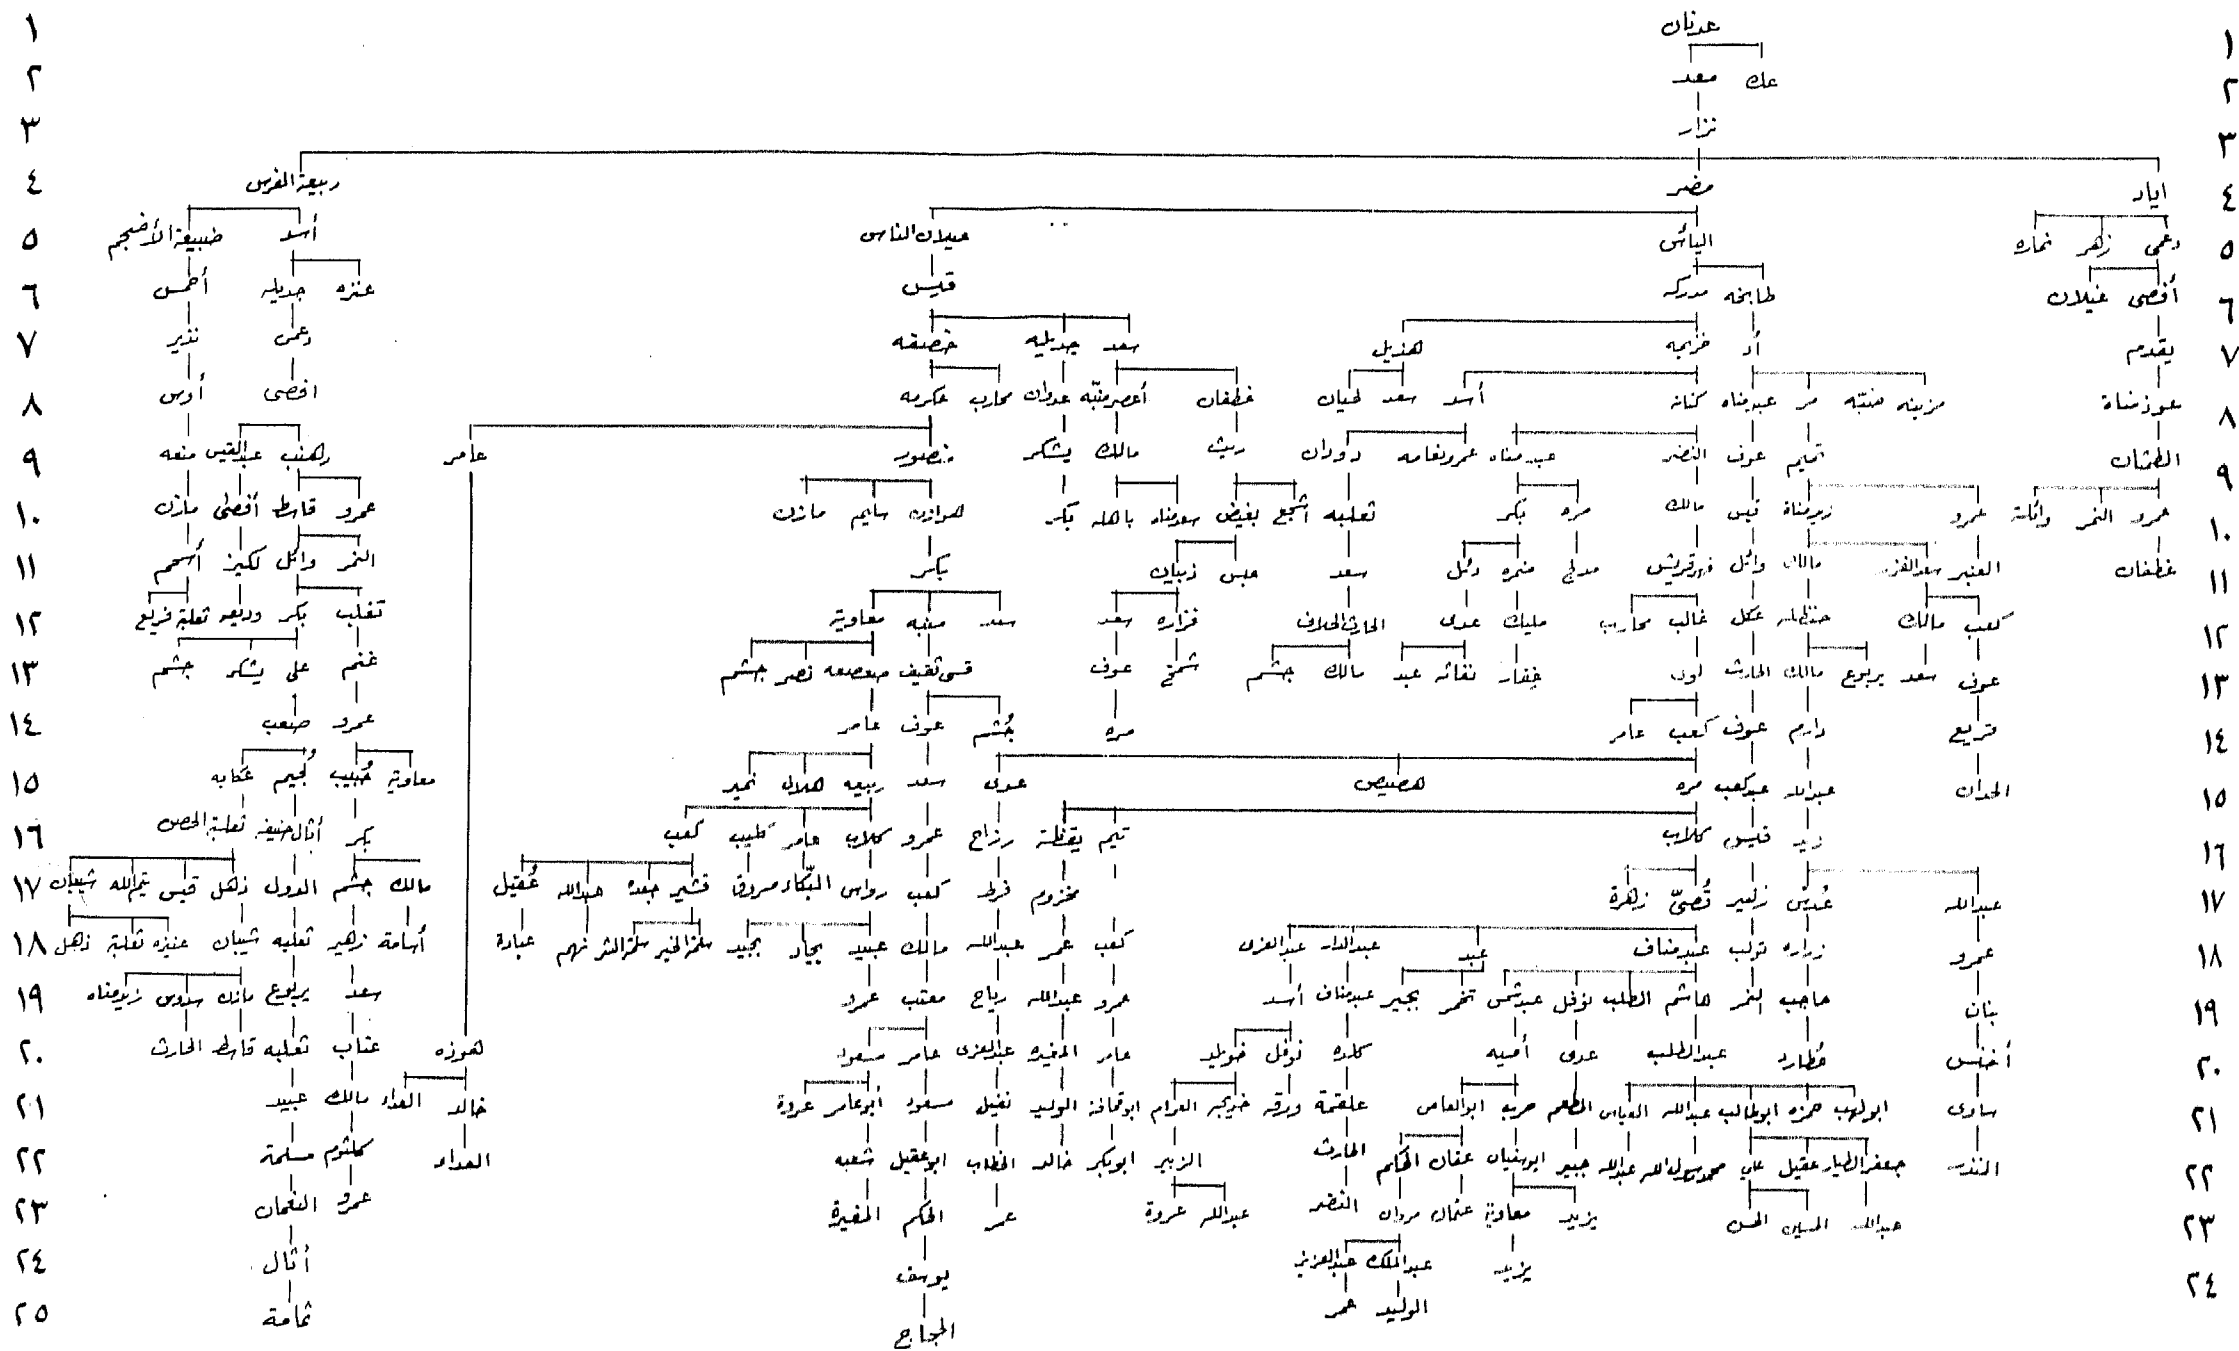 ١ عدنان ١
٢ عك معد ٢
٣ نزار ٣
٤ اياد مضر ربيعة الفرس ٤
٥ دعمى زهر نماره اليأس عيلان الناس أسد ضبيعة الأضجم ٥
٦ أفصى غيلان طابخه مدركه قيس عنزه جديله أحمس ٦
٧ يقدم أد خزيمه هذيل سعد جديله خصفه دعمى نذير ٧
٨ عوذ مناة مزينه ضبّه مر عبد مناه كنانه أسد سعد لحيان غطفان أعصر منبّه عدوان محارب عكرمه افصى أوس ٨
٩ الطمثان تميم عوف النضر عبد مناه عمرو نعامه دودان ريث مالك يشكر منصور عامر هنب عبد القيس منعه ٩
١٠ عمرو النمر وائلة عمرو زيد مناة قيس مالك مره بكر ثعلبه أشجع بغيض سعد مناه باهله بكر هوازن سليم مازن عمرو قاسط أفصى مازن ١٠
١١ غطفان العنبر سعد الفزر مالك وائل فهر قريش مدلج ضمره دئل سعد عبس ذبيان بكر النمر وائل لكيز أسحم ١١
١٢ كعب مالك حنظله عكل غالب محارب مليك عدى الحارث الحلاف فزاره سعد سعد منبه معاوية تغلب بكر وديعه ثعلبة فريع ١٢
١٣ عوف سعد يربوع مالك الحارث لوى غفار نفاثه عبد مالك جشم شمخ عوف قسى ثقيف صعصعه نصر جشم غنم على يشكر جشم ١٣
١٤ قريع دارم عوف كعب عامر مره جُشم عوف عامر عمرو صعب ١٤
١٥ الحدان عبدالله عبد كعب مره هصيص عدى سعد ربيعه هلال نمير معاوية حُبيب لُجيم عكابه ١٥
١٦ زيد قيس كلاب تيم يقظة رزاح عمرو كلاب عامر كليب كعب بكر أثال حنيفه ثعلبة الحصن ١٦
١٧ عبدالله عُدس زهير قُصىّ زهرة مخزوم قرط كعب رواس البكّاء مسروق قشير جعده عبدالله عُقيل مالك جشم الدول ذهل قيس تيم الله شيبان ١٧
١٨ عمرو زراره تولب عبد مناف عبد عبد الدار عبد العزى كعب عمر عبدالله مالك عبيد بجاد بجيد سلمة الخير سلمة الشر نهم عبادة أسامة زهير ثعلبه شيبان عنيزه ثعلبة ذهل ١٨
١٩ بنان حاجب النمر هاشم المطلب نوفل عبد شمس تخمر بجير عبد مناف أسد عمرو عبدالله رياح معتب عمرو سعد يربوع مازن سدوس زيد مناه ١٩
٢٠ أخنس عُطارد عبد المطلب عدى أميه كلده نوفل خويلد عامر المغيره عبد العزى عامر مسعود هوزه عتاب ثعلبه قاسط الحارث ٢٠
٢١ ساوى ابولهب حمزه ابوطالب عبدالله العباس المطعم حرب ابوالعاص علقمة ورقه خديجه العوام ابوقحافة الوليد نفيل مسعود أبوعامر عروة خالد العداء مالك عبيد ٢١
٢٢ المنذر جعفر الطيار عقيل علي محمد رسول الله عبدالله جبير ابوسفيان عفان الحكم الحارث الزبير ابوبكر خالد الخطاب ابوعقيل شعبه العداء كلثوم مسلمة ٢٢
٢٣ عبدالله الحسين الحسن يزيد معاوية عثمان مروان النضر عبدالله عروة عمر الحكم المغيرة عمرو النعمان ٢٣
٢٤ يزيد عبد الملك عبد العزيز يوسف أثال ٢٤
الوليد عمر الحجاج ثمامة ٢٥